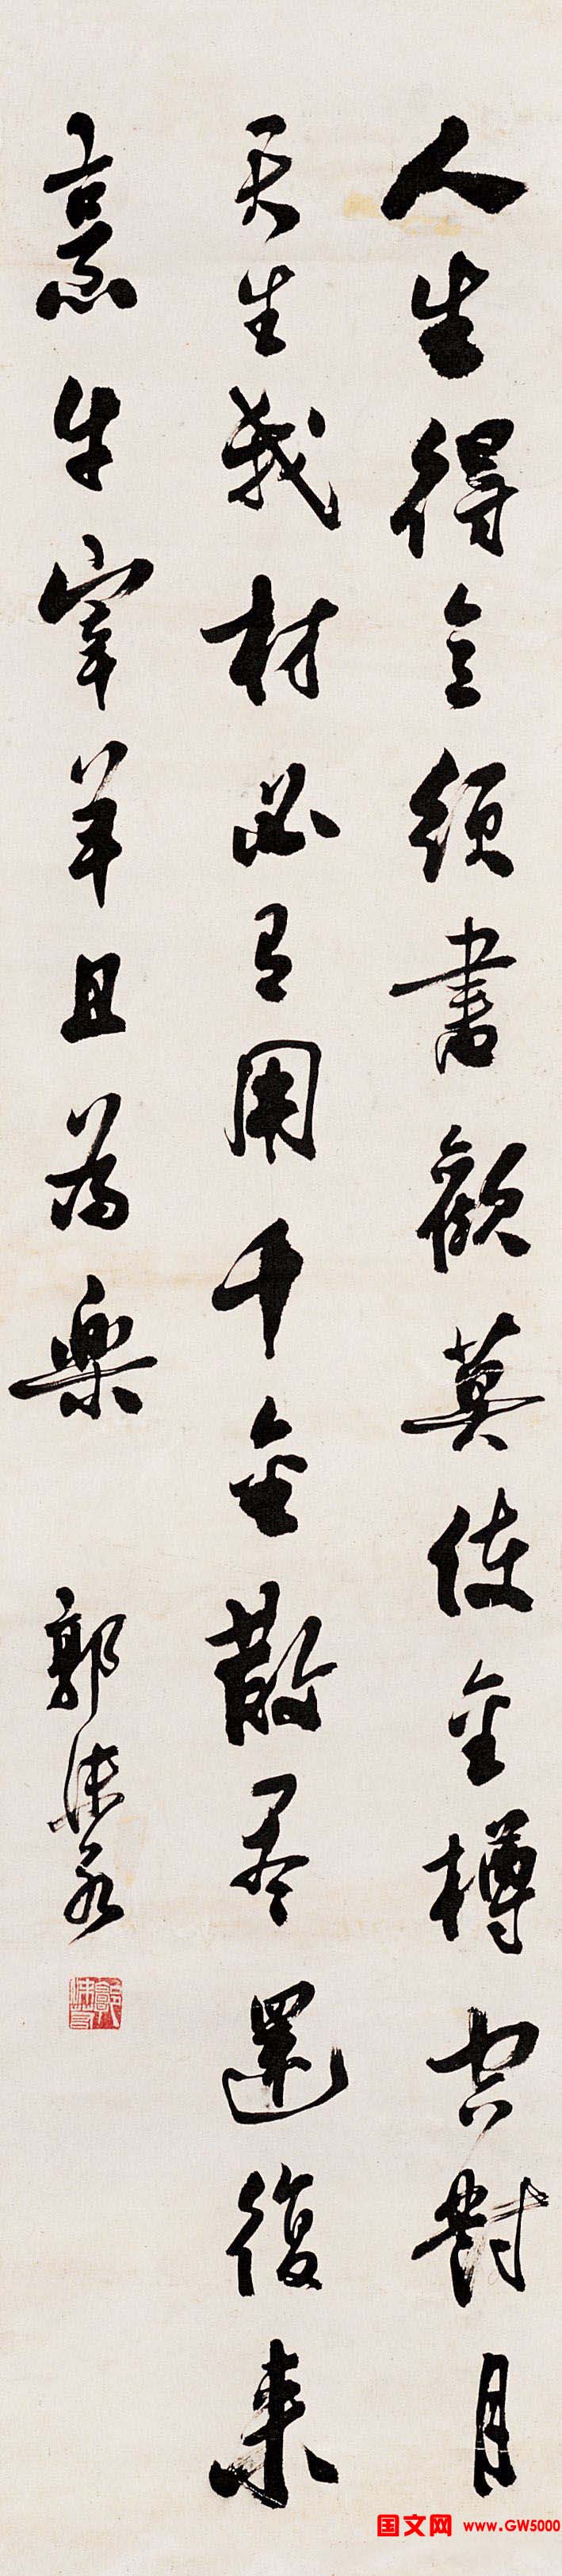 人生得意須盡歡莫使金樽空對月
天生我材必有用千金散尽還復来
烹牛宰羊且為楽
郭沫若
国文网 www.GW5000